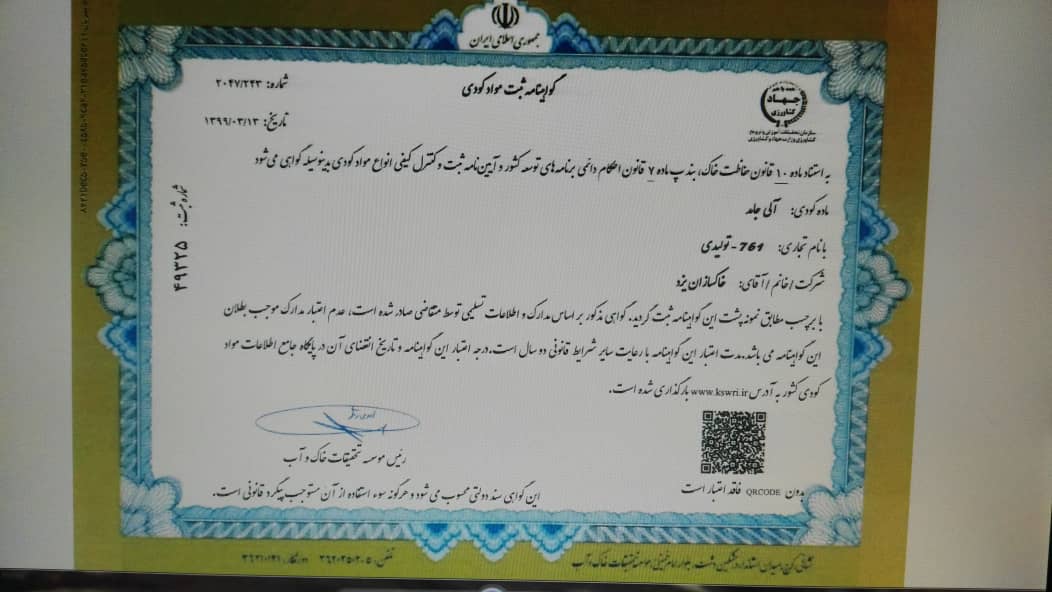 جمهوری اسلامی ایران
جهاد
کشاورزی
سازمان تحقیقات، آموزش و ترویج
کشاورزی وزارت جهاد کشاورزی
گواهینامه ثبت مواد کودی
شماره: ۲۰۴۷/۲۴۳
تاریخ: ۱۳۹۹/۰۳/۱۳
شماره ثبت: ۴۹۳۲۵
به استناد ماده ۱۰ قانون حفاظت خاک، بند پ ماده ۷ قانون احکام دائمی برنامه های توسعه کشور و آیین نامه ثبت و کنترل کیفی انواع مواد کودی بدینوسیله گواهی می شود
ماده کودی: آلی جامد
با نام تجاری: 761 - تولیدی
شرکت / خانم / آقای: خاکسازان یزد
با برچسب مطابق نمونه پشت این گواهینامه ثبت گردید. گواهی مذکور بر اساس مدارک و اطلاعات تسلیمی توسط متقاضی صادر شده است، عدم اعتبار مدارک موجب بطلان
این گواهینامه می باشد. مدت اعتبار این گواهینامه با رعایت سایر شرایط قانونی دو سال است. درجه اعتبار این گواهینامه و تاریخ انقضای آن در پایگاه جامع اطلاعات مواد
کودی کشور به آدرس www.kswri.ir بارگذاری شده است.
رئیس موسسه تحقیقات خاک و آب
بدون QRCODE فاقد اعتبار است
این گواهی سند دولتی محسوب می شود و هرگونه سوء استفاده از آن مستوجب پیگرد قانونی است.
نشانی: کرج، میدان استاندارد، مشکین دشت، بلوار امام خمینی، موسسه تحقیقات خاک و آب
تلفن: